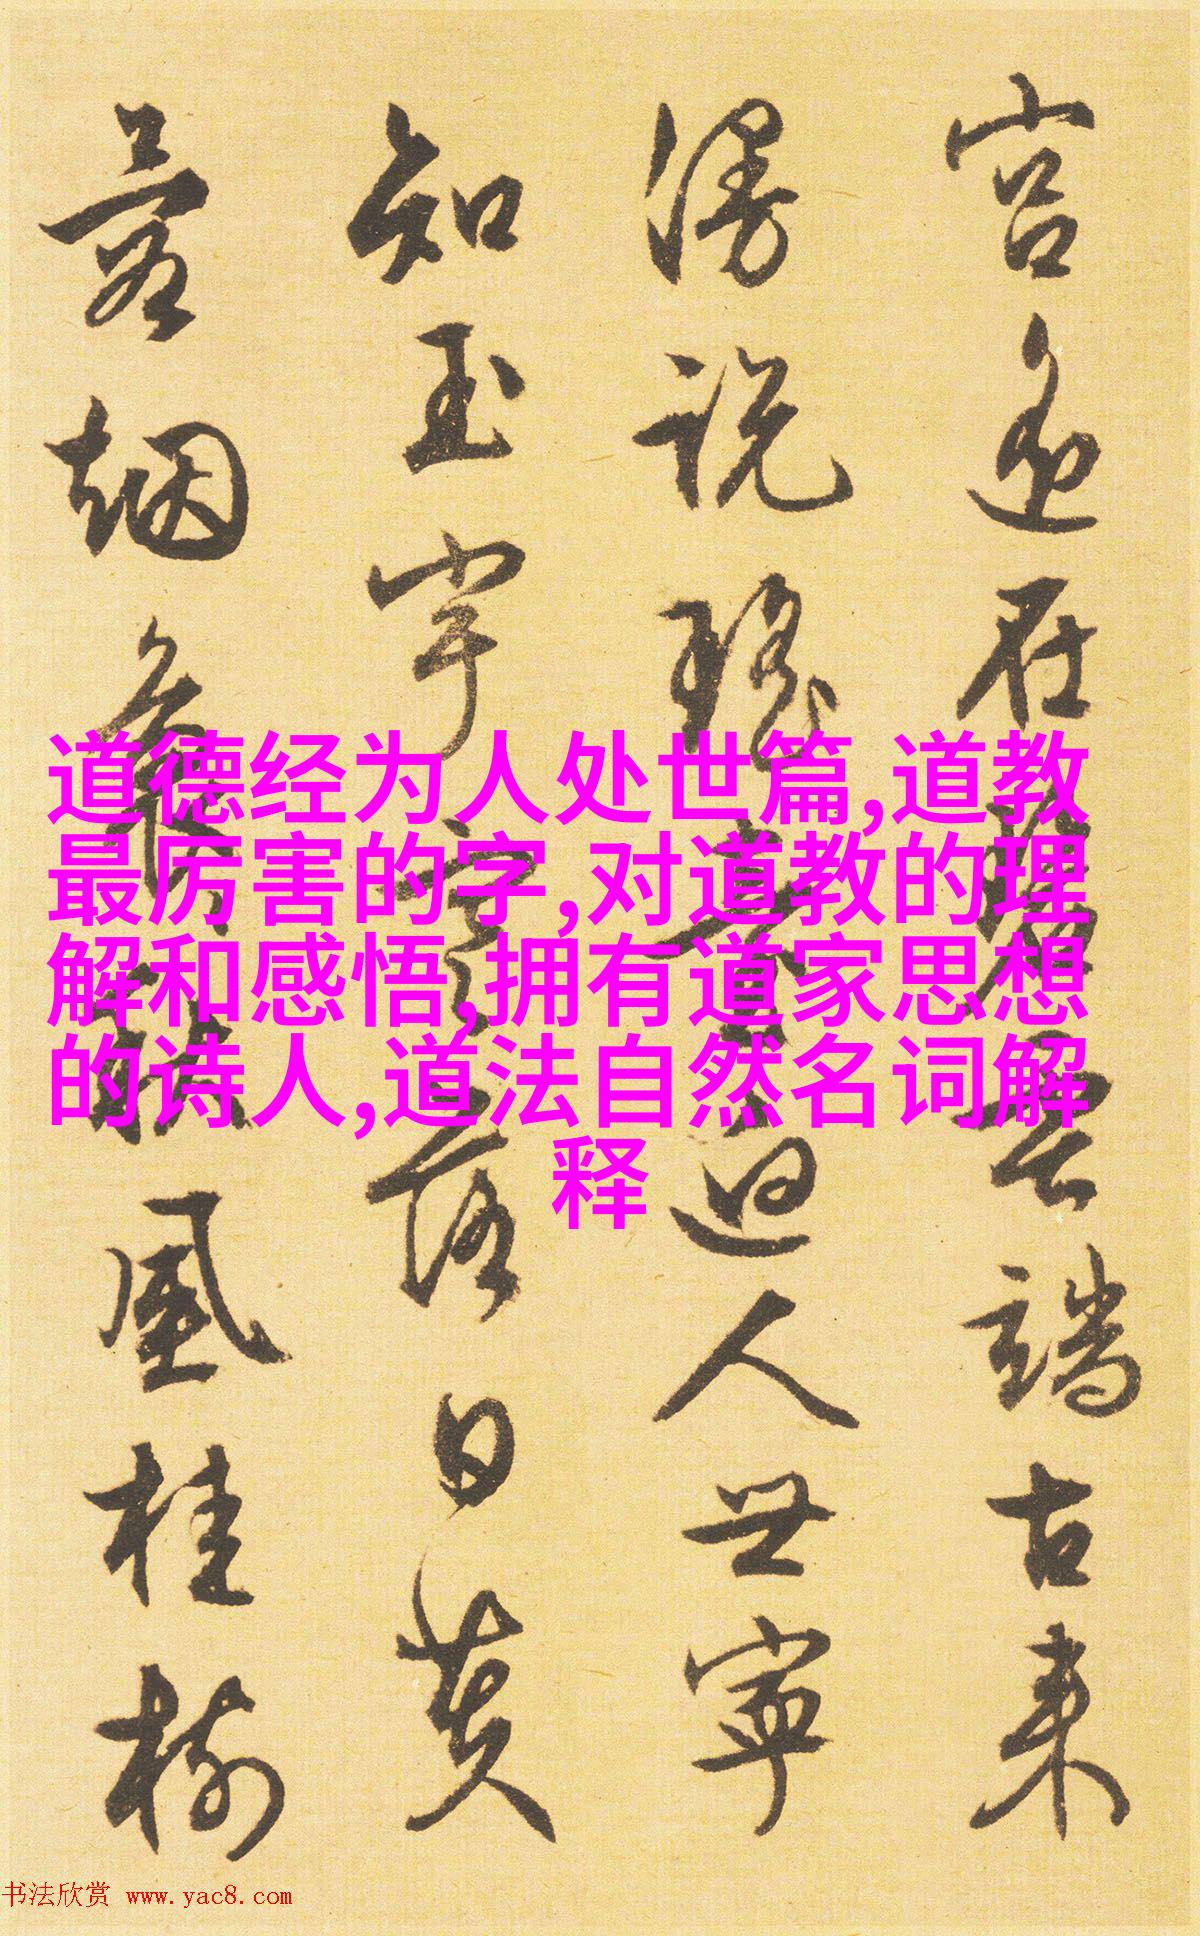 宫在端古来
漫说瑶臺迥人世寧
知玉宇落日黄
烟風桂樹
道德经为人处世篇,道教
最厉害的字,对道教的理
解和感悟,拥有道家思想
的诗人,道法自然名词解
释
书法欣赏 www.yac8.com